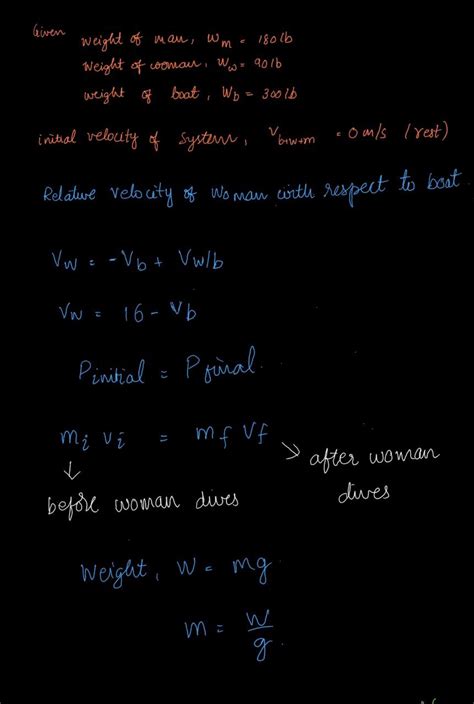 Given weight of man, Wm = 180 lb
Weight of woman, Ww = 90 lb
weight of boat, Wb = 300 lb
initial velocity of system, Vb+w+m = 0 m/s (rest)
Relative velocity of woman with respect to boat
Vw = -Vb + Vw/b
Vw = 16 - Vb
Pinitial = Pfinal.
mi vi = mf Vf
before woman dives
after woman
dives
Weight, W = mg
m = W/g